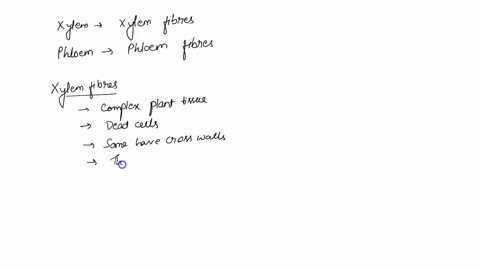 Xylem → Xylem fibres
Phloem → Phloem fibres
Xylem fibres
→ Complex plant tissue
→ Dead cells
→ Some have cross walls
→ Th